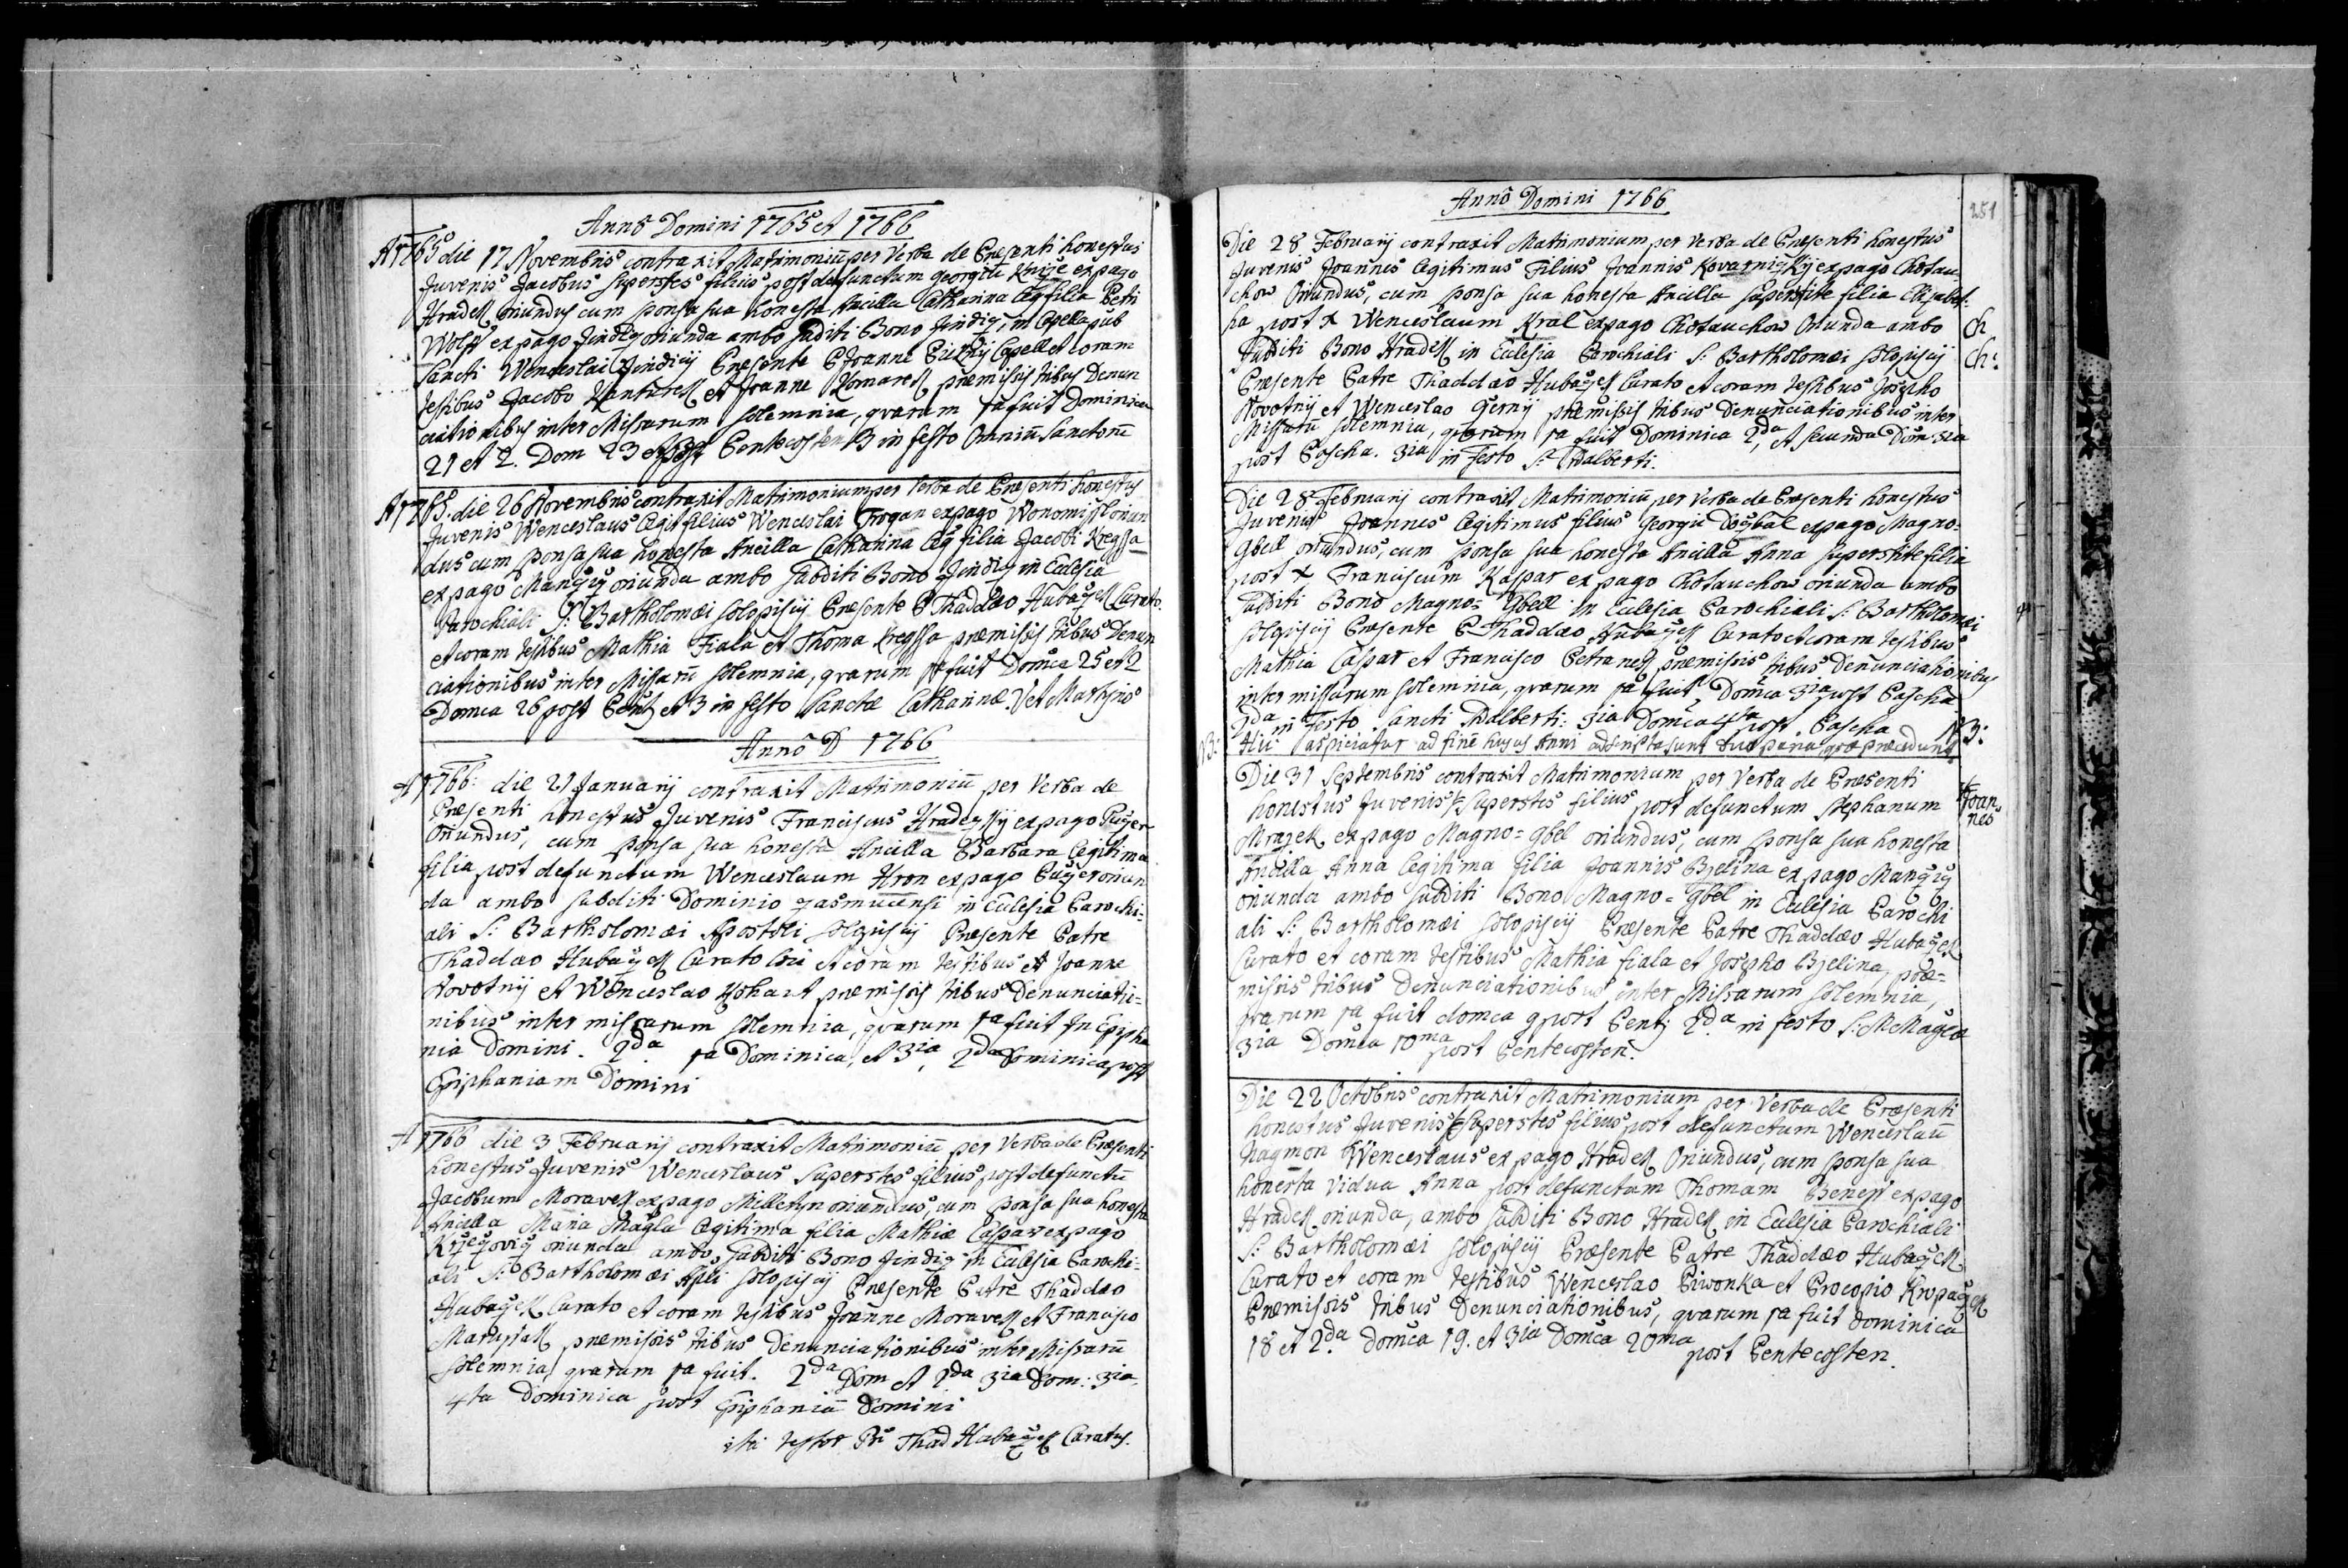 Anno Domini 1765 et 1766
A 1765 die 17 Novembris contraxit Matrimoniū per Verba de Præsenti honestus
Juvenis Jacobus superstes filius post defunctum Georgiū Knize ex pago
Hradek oriundus cum sponsa sua honesta Ancilla Catharina leg filia Petri
Wolff ex pago Jindicz oriunda ambo subditi Bono Jindicz, in Capella sub
Sancti Wenceslai Jindicij Præsente P Joanne Capell et coram
testibus Jacobo et Joanne Komarek, præmissis tribus Denun
ciationibus inter Missarum solemnia, qvarum 1a fuit Dominica
21 et 2. Dom 23 post Pentecosten 3 in festo Omniū Sanctorū
A 1765. die 26 Novembris contraxit Matrimonium per Verba de Præsenti honestus
Juvenis Wenceslaus legit filius Wenceslai Trogan ex pago Wonomissl oriun
dus cum sponsa sua honesta Ancilla Catharina leg filia Jacobi Kregssa
ex pago Manczicz oriunda ambo subditi Bono Jindicz in Ecclesia
Parochiali S: Bartholomæi Solopiscij Præsente P Thaddæo Hubaczek Curato
et coram testibus Mathia Fiala et Thoma Kregssa præmissis tribus Denun
ciationibus inter Missarū solemnia, qvarum 1a fuit Domca 25 et 2
Domca 26 post Pent et 3 in festo Sanctæ Catharinæ V et Martyris
Anno D 1766
A 1766: die 21 Januarij contraxit Matrimoniū per Verba de
Præsenti honestus Juvenis Franciscus Hradeczkij ex pago Puczer
oriundus, cum sponsa sua honesta Ancilla Barbara legitima
filia post defunctum Wenceslaum Hron ex pago Puczer oriun
da ambo subditi Dominio in Ecclesia Parochi=
ali S: Bartholomæi Apostoli Solopiscij Præsente Patre
Thaddæo Hubaczek Curato et coram testibus Joanne
Novotnij et Wenceslao præmissis tribus Denunciatio=
nibus inter missarum solemnia, qvarum 1a fuit In Epipha
nia Domini. 2da 1a Dominica, et 3ia, 2da Dominica post
Epiphaniam Domini
A 1766 die 3 Februarij contraxit Matrimoniū per Verba de Præsenti
honestus Juvenis Wenceslaus superstes filius post defunctū
Jacobum Moravek ex pago Milletyn oriundus, cum sponsa sua honesta
Ancilla Maria Magla legitima filia Mathiæ Caspar ex pago
oriunda ambo subditi Bono Jindicz in Ecclesia Parochi=
ali S: Bartholomæi Apli Solopiscij Præsente Patre Thaddæo
Hubaczek Curato et coram testibus Joanne Moravek et Francisco
Matussak præmissis tribus Denunciationibus inter Missarū
solemnia, qvarum 1a fuit. 2da Dom et 2da 3ia Dom: 3ia.
4ta Dominica post Epiphaniā Domini
ita testor Thad Hubaczek Curatus.
Anno Domini 1766
251
Die 28 Februarij contraxit Matrimonium per Verba de Præsenti honestus
Juvenis Joannes legitimus Filius Joannis Kovarniczkij ex pago Chotau
chow Oriundus, cum sponsa sua honesta Ancilla superstite filia Elisabet=
ha post x Wenceslaum Kral ex pago Chotauchow Oriunda ambo
subditi Bono Hradek in Ecclesia Parochiali S: Bartholomæi Solopiscij
Præsente Patre Thaddæo Hubaczek Curato et coram testibus Josepho
Novotnij et Wenceslao Czernij præmissis tribus Denunciationibus inter
Missarū solemnia, qvarum 1a fuit Dominica 2da, et secunda Dom 3ia
post Pascha. 3ia in Festo S: Adalberti.
Ch
Ch:
Die 28 Februarij contraxit Matrimoniū per Verba de Præsenti honestus
Juvenis Joannes legitimus filius Georgii Dogbal ex pago Magno=
Gbell oriundus, cum sponsa sua honesta Ancilla Anna superstite filia
post x Franciscum Kaspar ex pago Chotauchow oriunda ambo
subditi Bono Magno= Gbell in Ecclesia Parochiali S: Bartholomæi
Solopiscij Præsente P Thaddæo Hubaczek Curato et coram testibus
Mathia Caspar et Francisco præmissis tribus Denunciationibus
inter missarum solemnia, qvarum 1a fuit, Domca 3ia post Pascha
2da in Festo Sancti Adalberti: 3ia Domca 4ta post Pascha
Hic aspiciatur ad finē hujus Anni adscripta sunt duo paria, qvæ præcedunt
Die 31 Septembris contraxit Matrimonium per Verba de Præsenti
honestus Juvenis superstes filius post defunctum Stephanum
Joan
nes
Mrazek ex pago Magno= Gbel oriundus, cum sponsa sua honesta
Ancilla Anna legitima filia Joannis Bjelina ex pago Manczicz
oriunda ambo subditi Bono Magno= Gbel in Ecclesia Parochi
ali S: Bartholomæi Solopiscij Præsente Patre Thaddæo Hubaczek
Curato et coram testibus Mathia Fiala et Josepho Bjelina, præ=
missis tribus Denunciationibus inter Missarum solemnia,
qvarum 1a fuit domca 9 post Pent; 2da in festo S: M Magdæ
3ia Domca 10ma post Pentecosten.
Die 22 Octobris contraxit Matrimonium per Verba de Præsenti
honestus Juvenis superstes filius post defunctum Wenceslaū
Hagmon Wenceslaus ex pago Hradek Oriundus, cum sponsa sua
honesta Vidua Anna post defunctum Thomam Beness ex pago
Hradek oriunda, ambo subditi Bono Hradek in Ecclesia Parochiali
S: Bartholomæi Solopiscij Præsente Patre Thaddæo Hubaczek
Curato et coram testibus Wenceslao Piwonka et Procopio Kropaczek
Præmissis tribus Denunciationibus, qvarum 1a fuit dominica
18 et 2da domca 19. et 3ia Domca 20ma post Pentecosten.